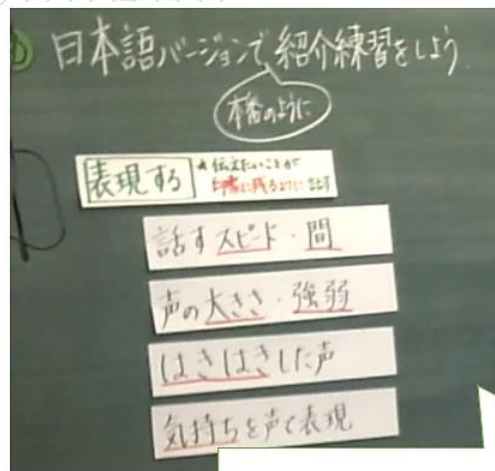 め 日本語バージョンで紹介練習をしよう.
本番のように
表現する
★伝えたいことが
印象に残るように 話す
話すスピード・間
声の大きさ・強弱
はきはきした声
気持ちを声で表現